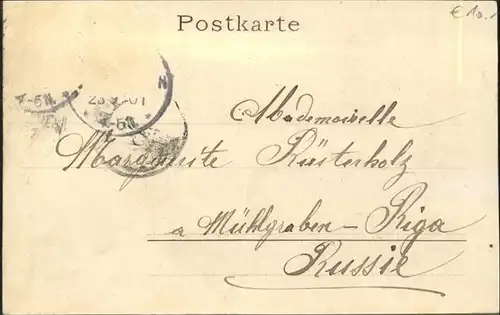 Postkarte
€10.-
23 01
4-5N.
4-5N.
N
Mademoiselle
Marguerite Rüsterholz
a Mühlgraben - Riga
Russie